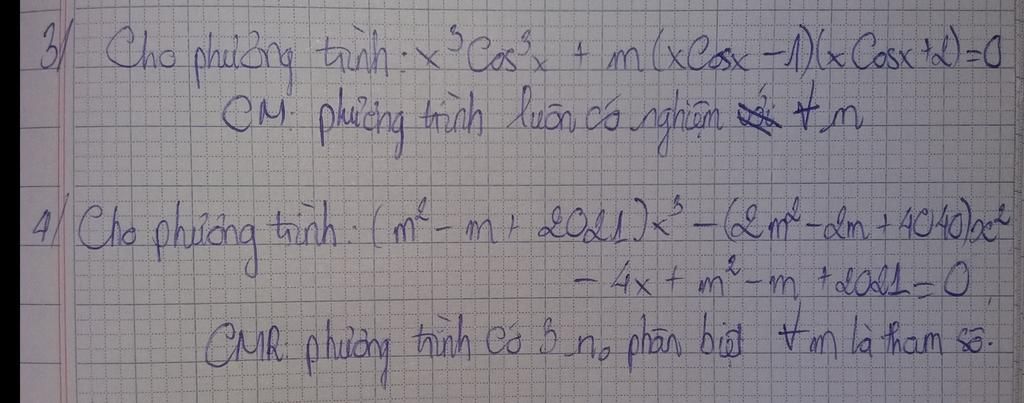 3/ Cho phương trình: x³Cos³x + m(xCosx -1)(xCosx+2)=0
CM: phương trình luôn có nghiệm ∀m
4/ Cho phương trình: (m² - m + 2021)x³ - (2m² - 2m + 4040)x²
- 4x + m² - m + 2021 = 0
CMR: phương trình có 3 no phân biệt ∀m là tham số.